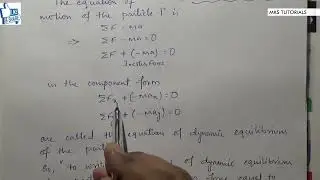 The equation of
MKS TUTORIALS
motion of the particle P is
ΣF = ma
⇒ ΣF - ma = 0
ΣF + (-ma) = 0
Inertia Force
in the component form
ΣFx + (-max) = 0
ΣF + (-may) = 0
are called the equation of dynamic equilibrium
of the particle
"to write of dynamic equilibrium
equal to